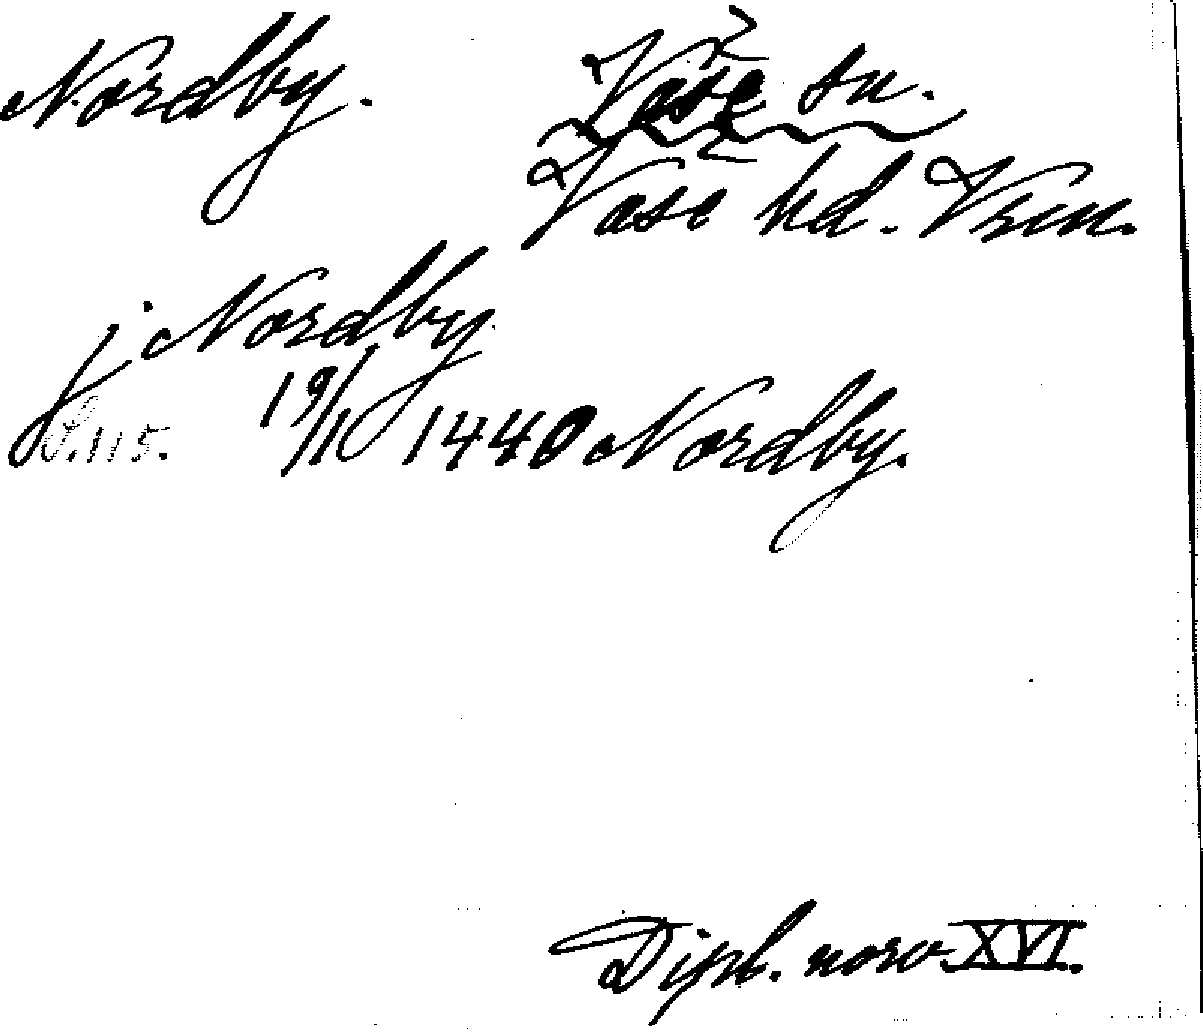 Nordby. Väse sn.
Väse hd. Vrm.
j Nordby
S. 115. 19/10 1440 Nordby.
Dipl. norv. XVI.